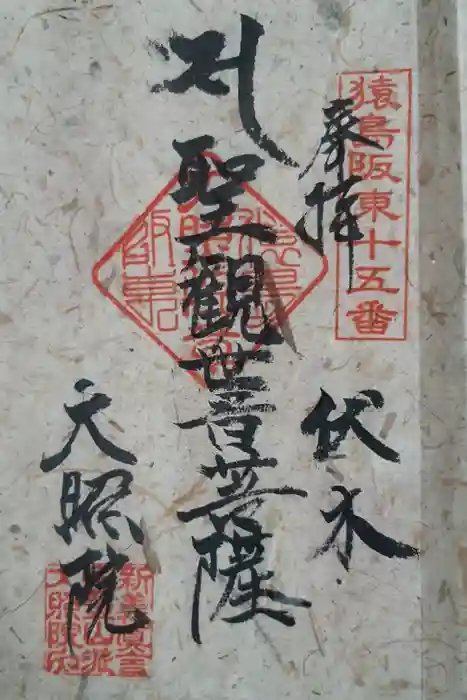 猿島阪東十五番
奉拝
伏木
聖観世音菩薩
天照院